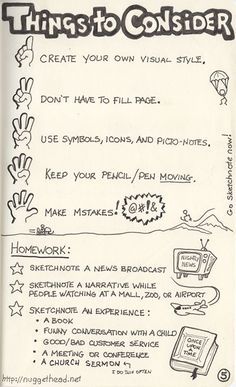 THINGS to CONSIDER
CREATE YOUR OWN VISUAL STYLE.
DON'T HAVE TO FILL PAGE.
USE SYMBOLS, ICONS, AND PICTO-NOTES.
KEEP YOUR PENCIL/PEN MOVING.
MAKE MSTAKES!
@#&!
Go Sketchnote now!
HOMEWORK:
SKETCHNOTE A NEWS BROADCAST
NIGHTLY NEWS
SKETCHNOTE A NARRATIVE WHILE
PEOPLE WATCHING AT A MALL, ZOO, OR AIRPORT
SKETCHNOTE AN EXPERIENCE:
• A BOOK
• FUNNY CONVERSATION WITH A CHILD
• GOOD/BAD CUSTOMER SERVICE
• A MEETING OR CONFERENCE
• A CHURCH SERMON
I DO THIS OFTEN
ONCE UPON A TIME
5
http://nuggethead.net